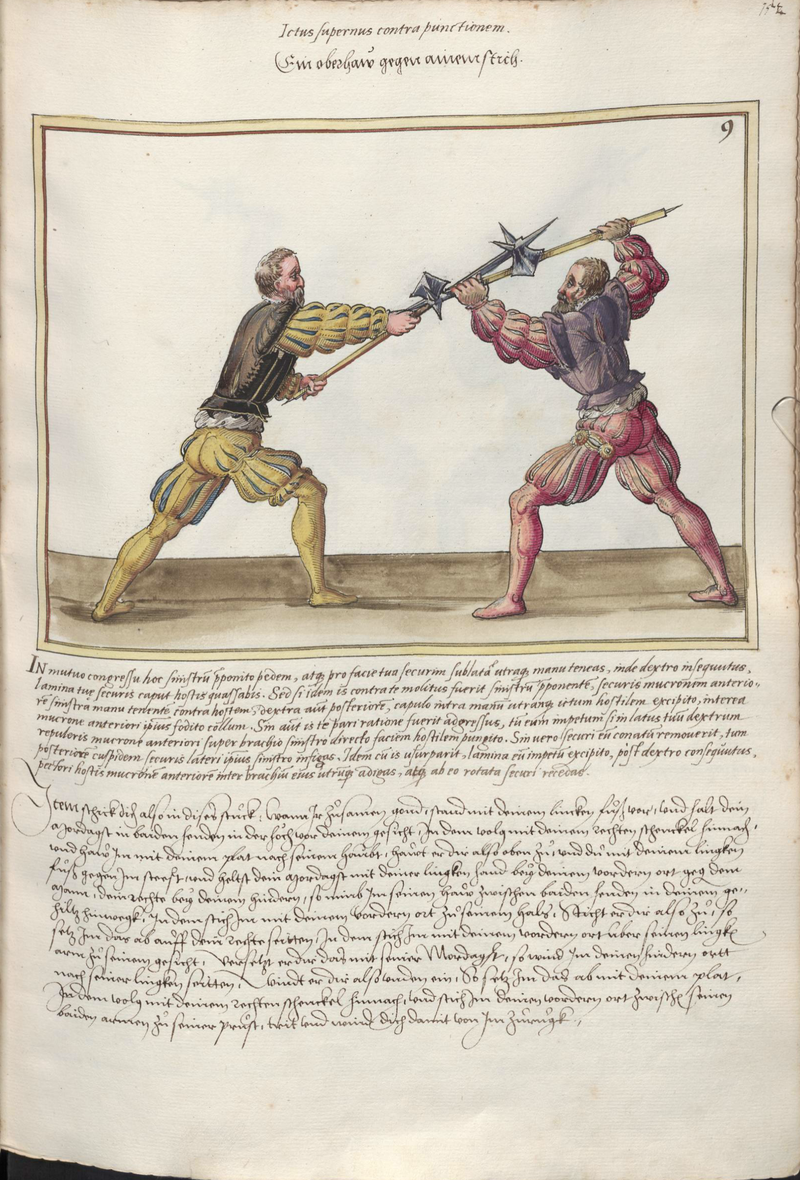 Ictus supernus contra punctionem.
Ein oberhaw gegen ainem stich.
9
IN mutuo congressu hoc sinistrũ pponito pedem, atq, pro facie tua securim sublatã utraq, manu teneas, inde dextro insequutus,
lamina tuę securis caput hostis quassabis. Sed si idem is contra te molitus fuerit sinistrũ pponentẽ, securis mucronem anterio-
rẽ sinistra manu tenente contra hostem, dextra aut posteriorẽ, capulo intra manũ utranq, ictum hostilem excipito, interea
mucrone anteriori ipsius fodito collum. Sin aũt is te pari ratione fuerit adgressus, tũ eum impetum si in latus tuũ dextrum
repuleris mucrone anteriori super brachio sinistro directo faciem hostilem pungito. Sin vero securi eũ conatũ removerit, tum
posteriorẽ cuspidem securis lateri ipsius sinistro infigas. Idem cũ is usurparit, lamina eũ impetũ excipito, post dextro consequutus,
pectori hostis mucronẽ anteriorẽ inter brachiũ eius utrũq, adigas, atq, ab eo rotata securi recedas.
Item schick dich also in diser stuck: wann Ir zusamen gond, stand mit deinem lincken fuß vor, und halt dein
Mordagst in baiden henden in der höch vor deinem gesicht, In dem volg mit deinem rechten schenckel hinnach,
und haw Im mit deinem plat nach seinem haubt, hawet er dir also oben zu, und du mit deinem lingken
fuß gegen Im steest, und heltst dein Mordagst mit deiner lingken hand bey deinem vordern ort geg dem
Mann, dein rechte bey deinem hindern, so nimb Im seinen haw zwischen baiden henden in deinem ge-
hiltz hinwegk, In dem stich Im mit deinem vordern ort zu seinem hals, Sticht er dir also zu, so
setz Im das ab auff dein rechte seitten, In dem stich Im mit deinem vordern ort uber seinen lingkẽ
arm zu seinem gesicht, Versetzt er dir das mit seiner Mordagst, so wind Im deinen hindern ort
nach seiner lingken seitten, Windt er dir also unden ein, So setz Im das ab mit deinem plat,
In dem volg mit deinem rechten schenckel hinnach, und stich Im deinen vordern ort zwischẽ seinen
baiden armen zu seiner prust, trit und wind dich damit von Im zurugk.